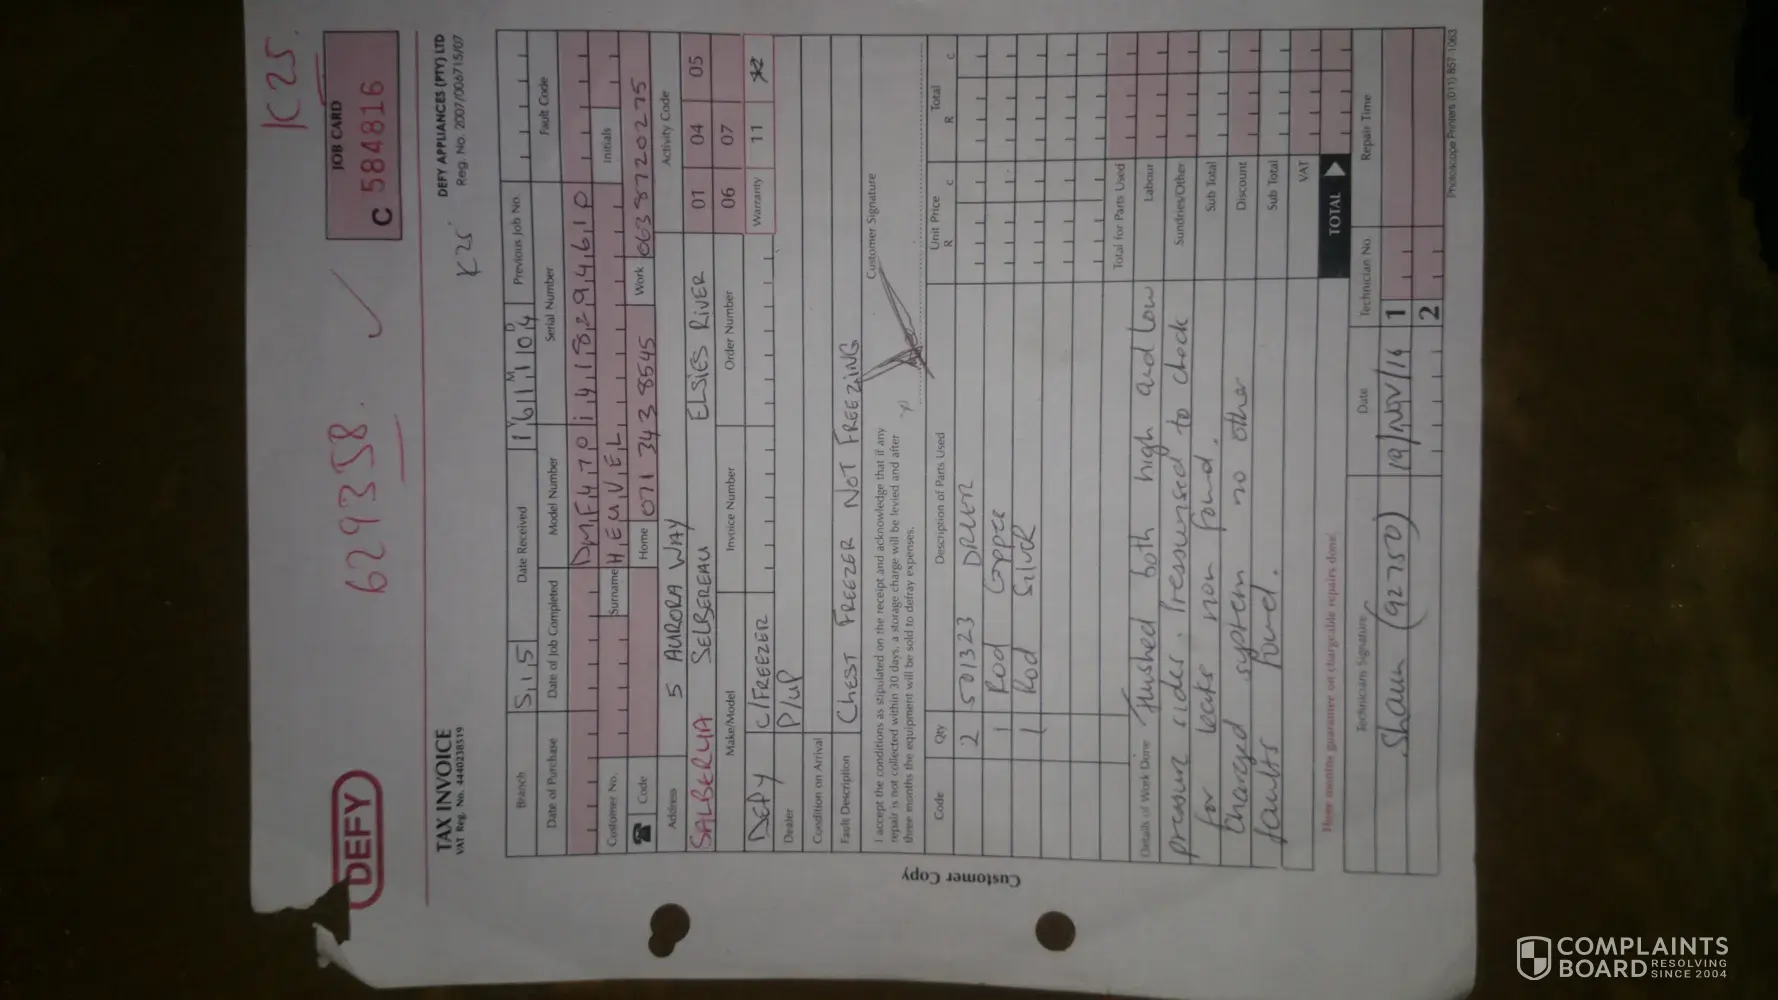 K25.
DEFY
629358.
JOB CARD
C 584816
TAX INVOICE
VAT Reg. No. 4440238519
K25
DEFY APPLIANCES (PTY) LTD
Reg. No. 2007/006715/07
Branch S15 Date Received Y 16 M 11 D 04 Previous Job No.
Date of Purchase Date of Job Completed Model Number Serial Number Fault Code
DMF470 1418294610
Customer No. Surname HEUVEL Initials
Code Home 071 343 8545 Work 0638720275
Address 5 AURORA WAY Activity Code
SALBERUA SELBEREAU ELSIES RIVER 01 04 05
Make/Model Invoice Number Order Number 06 07
DEFY C/FREEZER Warranty 11
Dealer P/UP
Condition on Arrival
Fault Description CHEST FREEZER NOT FREEZING
I accept the conditions as stipulated on the receipt and acknowledge that if any
repair is not collected within 30 days, a storage charge will be levied and after
three months the equipment will be sold to defray expenses.
Customer Signature
Code Qty Description of Parts Used Unit Price R c Total R c
2 501323 DRIER
1 Rod Copper
1 Rod Silver
Total for Parts Used
Details of Work Done Flushed both high and low Labour
pressure sides. Pressurised to check Sundries/Other
for leaks non found. Sub Total
Charged system no other Discount
faults found. Sub Total
VAT
TOTAL
Three months guarantee on chargeable repairs done.
Technicians Signature Date Technician No. Repair Time
Shaun (92750) 19/NOV/16 1
2
Photoscope Printers (011) 857-1063
Customer Copy
COMPLAINTS
BOARD RESOLVING
SINCE 2004